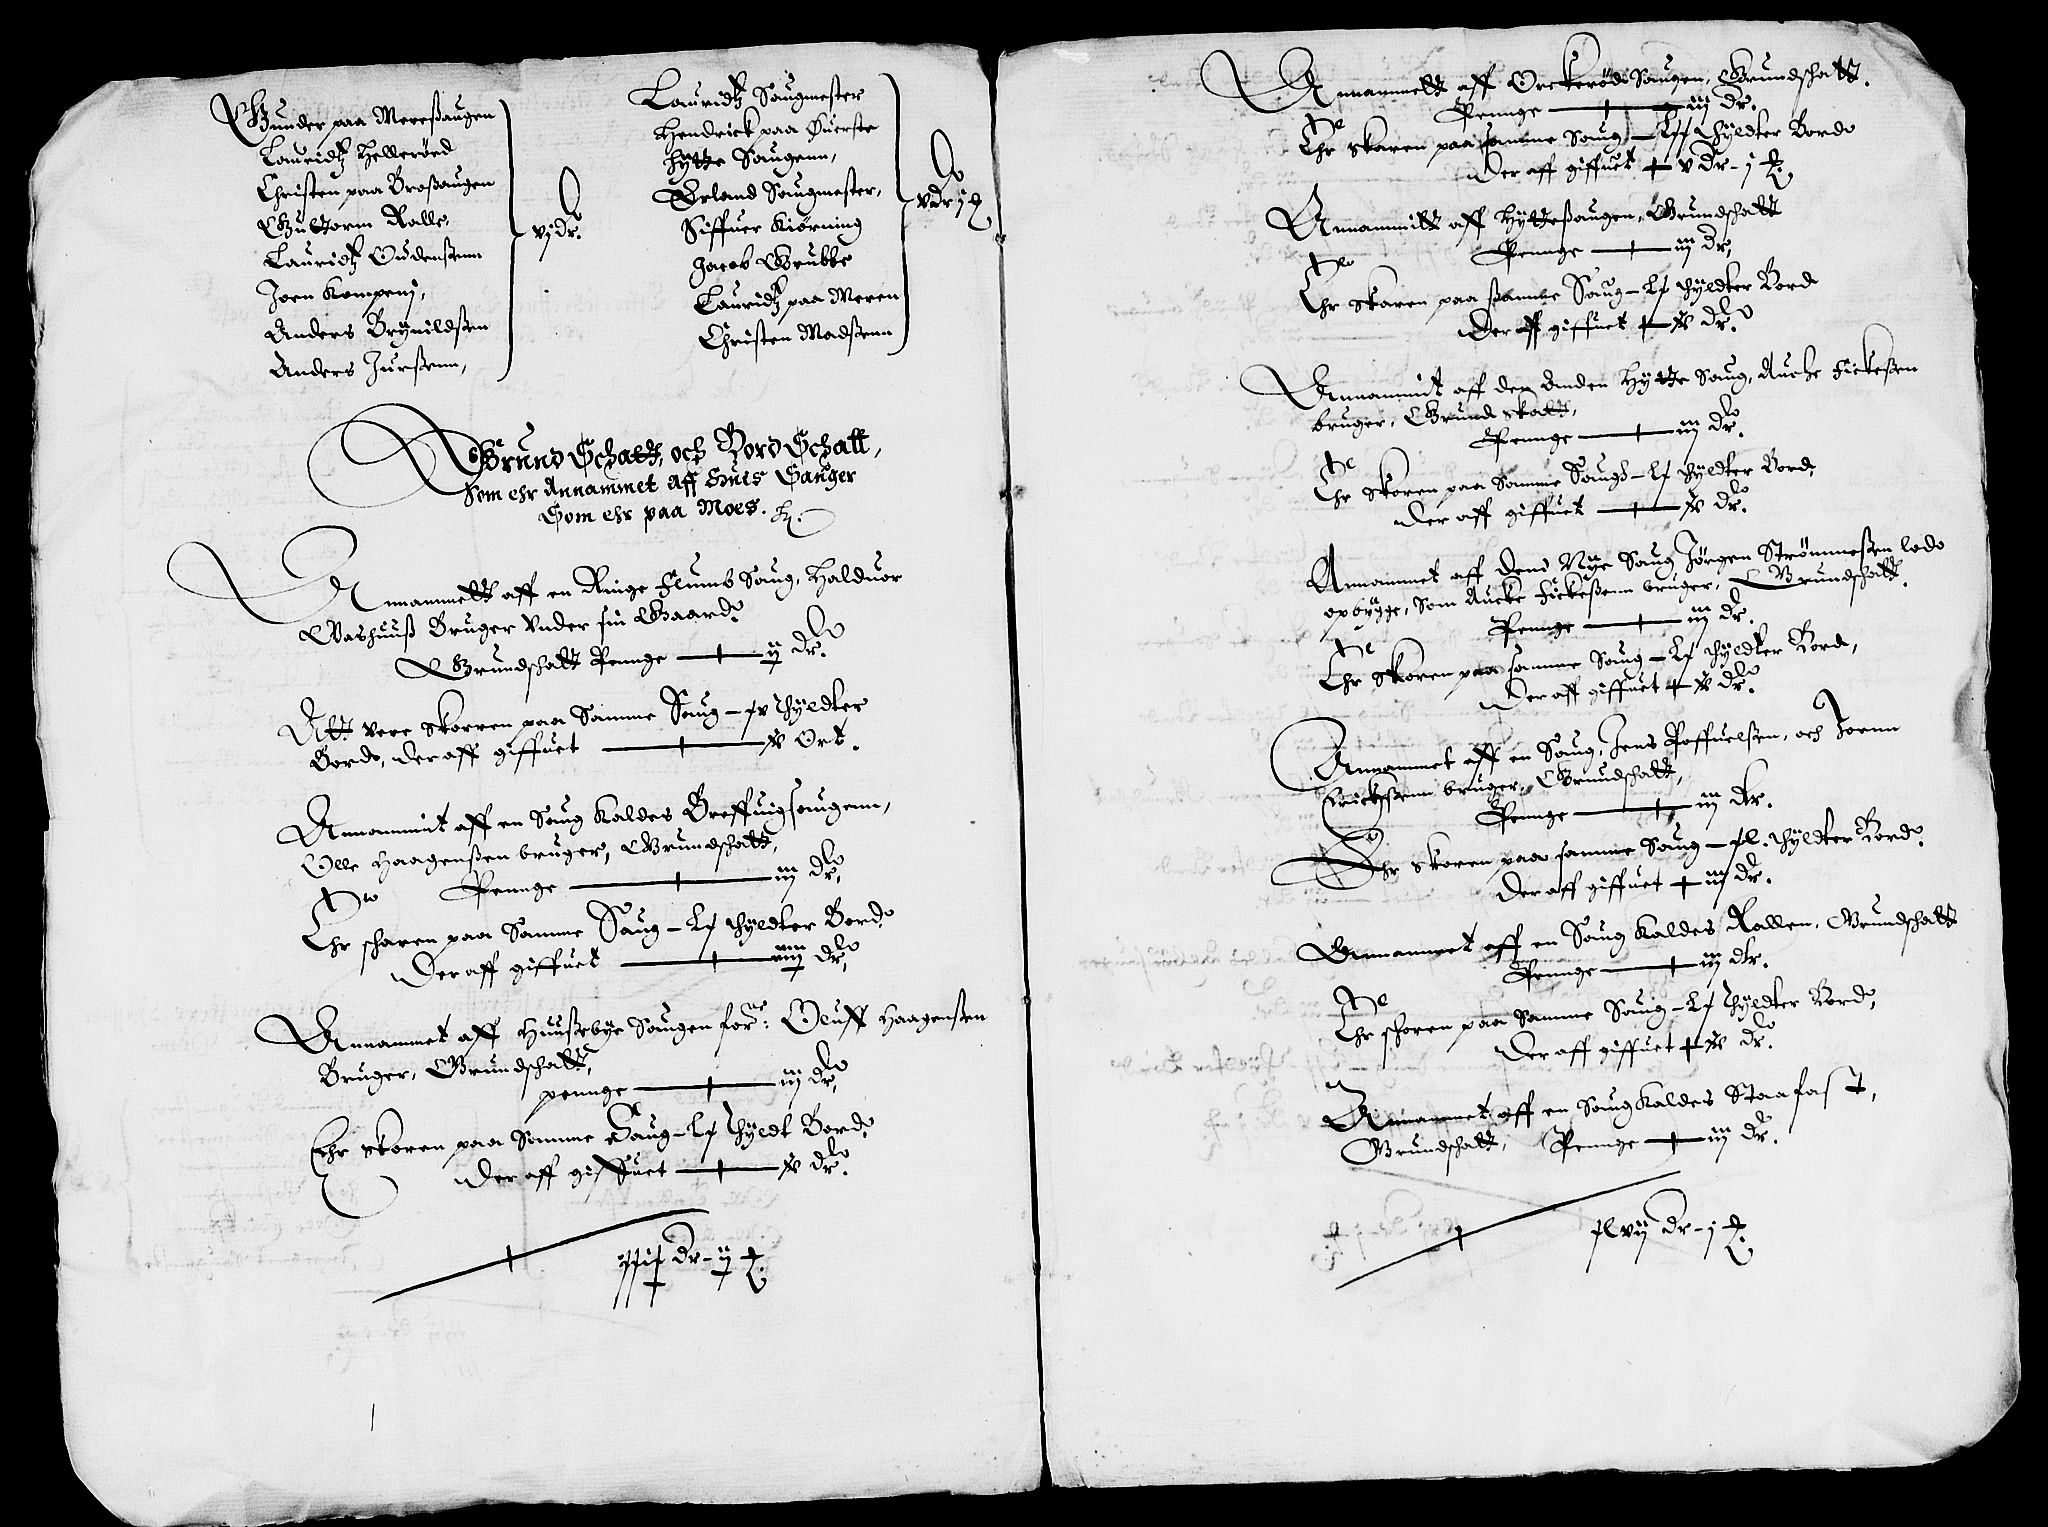 Gunder paa Mereßaugen
Lauridtz Hellerøed
Christen paa Broßaugen
Guttorm Ralle,
Lauridtz Oudenßenn
Joen Kempenj,
Anders Brynildßen
Anders Jurßenn,
vj dr.
Lauridtz Saugmester
Hendrick paa Øuerste
hytte Saugenn,
Erland Saugmester,
Siffuer Kiørning
Jacob Grubbe
Lauridtz paa Meren
Christen Madßenn
v dr j
Grund Schatt, och Bord Schatt,
Som ehr Annammet Aff Huis Sauger
Som ehr paa Moes.
Annammett aff en Ringe Flumb Saug, Halduor
Vashuuß Bruger Vnder sin Gaard.
Grundschatt Pennge — ij dr.
Att vere skorren paa Samme Saug – xv thyldter
Bord, der aff giffuet — x Ort.
Annammit aff en Saug Kaldes Greffuigsaugenn,
Olle Haagenßen bruger, Grundschatt,
Pennge — iij dr,
Ehr schoren paa Samme Saug – Lx thyldter Bord
Der aff giffuet — viij dr,
Annammet aff Huußebye Saugen for: Oluff Haagenßen
Bruger, Grundschatt,
pennge — iij dr,
Ehr skoren paa Samme Saug – Lx thyldt Bord
Der aff giffuet — x dr.
dr – ij
Annammett aff Orckerød Saugen, Grundschatt.
Pennge — iij dr.
Ehr skoren paa samme Saug – thyldter Bord
Der aff giffuet v dr – j
Annammitt aff Hytteßaugen, Grundschatt
Pennge — iij dr,
Ehr skoren paa ßamme Saug – Lx thyldter Bord
Der aff giffuet x dr.
Annammit aff den Anden Hytte Saug, Aucke Fickeßen
bruger, Grund skatt,
Pennge — iij dr.
Ehr skoren paa Samme Saug – Lx thyldter Bord,
Der aff giffuet — x dr.
Annammet aff Dend Nye Saug Jørgen Strømmeßen lod
opbygge, Som Aucke Fickeßenn bruger, Grundschatt.
Pennge — iij dr.
Ehr Skoren paa samme Saug – Lx thyldter Bord,
Der aff giffuet x dr.
Annammet aff en Saug, Jens Poffuelßen, och Joenn
Erickßenn bruger, Grundschatt,
Pennge — iij dlr.
Ehr skoren paa samme Saug – xl. thyldter Bord.
Der aff giffuet iij dr.
Annammet aff en Saug Kaldes Rallen, Grundschatt
Pennge — iij dlr.
Ehr schoren paa Samme Saug – Lx thyldter Bord,
Der aff giffuet x dr.
Annammet aff en Saug Kaldes Staafast,
Grundschatt, Pennge — iij dr.
xlvij dr – j